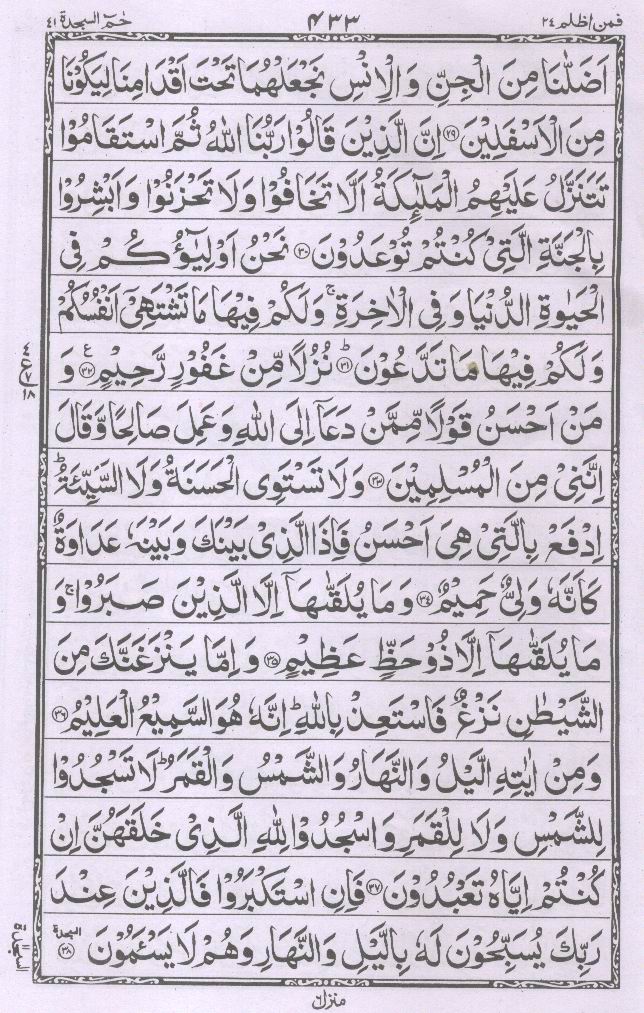 فمن اظلم ٢٤
٤٣٣
حٰمٓ السجدة ٤١
اَضَلّٰنَا مِنَ الْجِنِّ وَ الْاِنْسِ نَجْعَلْهُمَا تَحْتَ اَقْدَامِنَا لِيَكُوْنَا
مِنَ الْاَسْفَلِيْنَ ۝٢٩ اِنَّ الَّذِيْنَ قَالُوْا رَبُّنَا اللّٰهُ ثُمَّ اسْتَقَامُوْا
تَتَنَزَّلُ عَلَيْهِمُ الْمَلٰٓئِكَةُ اَلَّا تَخَافُوْا وَ لَا تَحْزَنُوْا وَ اَبْشِرُوْا
بِالْجَنَّةِ الَّتِيْ كُنْتُمْ تُوْعَدُوْنَ ۝٣٠ نَحْنُ اَوْلِيٰٓؤُكُمْ فِي
الْحَيٰوةِ الدُّنْيَا وَ فِي الْاٰخِرَةِ ۚ وَ لَكُمْ فِيْهَا مَا تَشْتَهِيْۤ اَنْفُسُكُمْ
وَ لَكُمْ فِيْهَا مَا تَدَّعُوْنَ ۝٣١ؕ نُزُلًا مِّنْ غَفُوْرٍ رَّحِيْمٍ ۝٣٢ ع وَ
مَنْ اَحْسَنُ قَوْلًا مِّمَّنْ دَعَاۤ اِلَى اللّٰهِ وَ عَمِلَ صَالِحًا وَّ قَالَ
اِنَّنِيْ مِنَ الْمُسْلِمِيْنَ ۝٣٣ وَ لَا تَسْتَوِي الْحَسَنَةُ وَ لَا السَّيِّئَةُ ؕ
اِدْفَعْ بِالَّتِيْ هِيَ اَحْسَنُ فَاِذَا الَّذِيْ بَيْنَكَ وَ بَيْنَهٗ عَدَاوَةٌ
كَاَنَّهٗ وَلِيٌّ حَمِيْمٌ ۝٣٤ وَ مَا يُلَقّٰىهَاۤ اِلَّا الَّذِيْنَ صَبَرُوْا ۚ وَ
مَا يُلَقّٰىهَاۤ اِلَّا ذُوْ حَظٍّ عَظِيْمٍ ۝٣٥ وَ اِمَّا يَنْزَغَنَّكَ مِنَ
الشَّيْطٰنِ نَزْغٌ فَاسْتَعِذْ بِاللّٰهِ ؕ اِنَّهٗ هُوَ السَّمِيْعُ الْعَلِيْمُ ۝٣٦
وَ مِنْ اٰيٰتِهِ الَّيْلُ وَ النَّهَارُ وَ الشَّمْسُ وَ الْقَمَرُ ؕ لَا تَسْجُدُوْا
لِلشَّمْسِ وَ لَا لِلْقَمَرِ وَ اسْجُدُوْا لِلّٰهِ الَّذِيْ خَلَقَهُنَّ اِنْ
كُنْتُمْ اِيَّاهُ تَعْبُدُوْنَ ۝٣٧ فَاِنِ اسْتَكْبَرُوْا فَالَّذِيْنَ عِنْدَ
رَبِّكَ يُسَبِّحُوْنَ لَهٗ بِالَّيْلِ وَ النَّهَارِ وَ هُمْ لَا يَسْـَٔمُوْنَ ۝٣٨ السجدة
السجدة ١١
منزل ٦